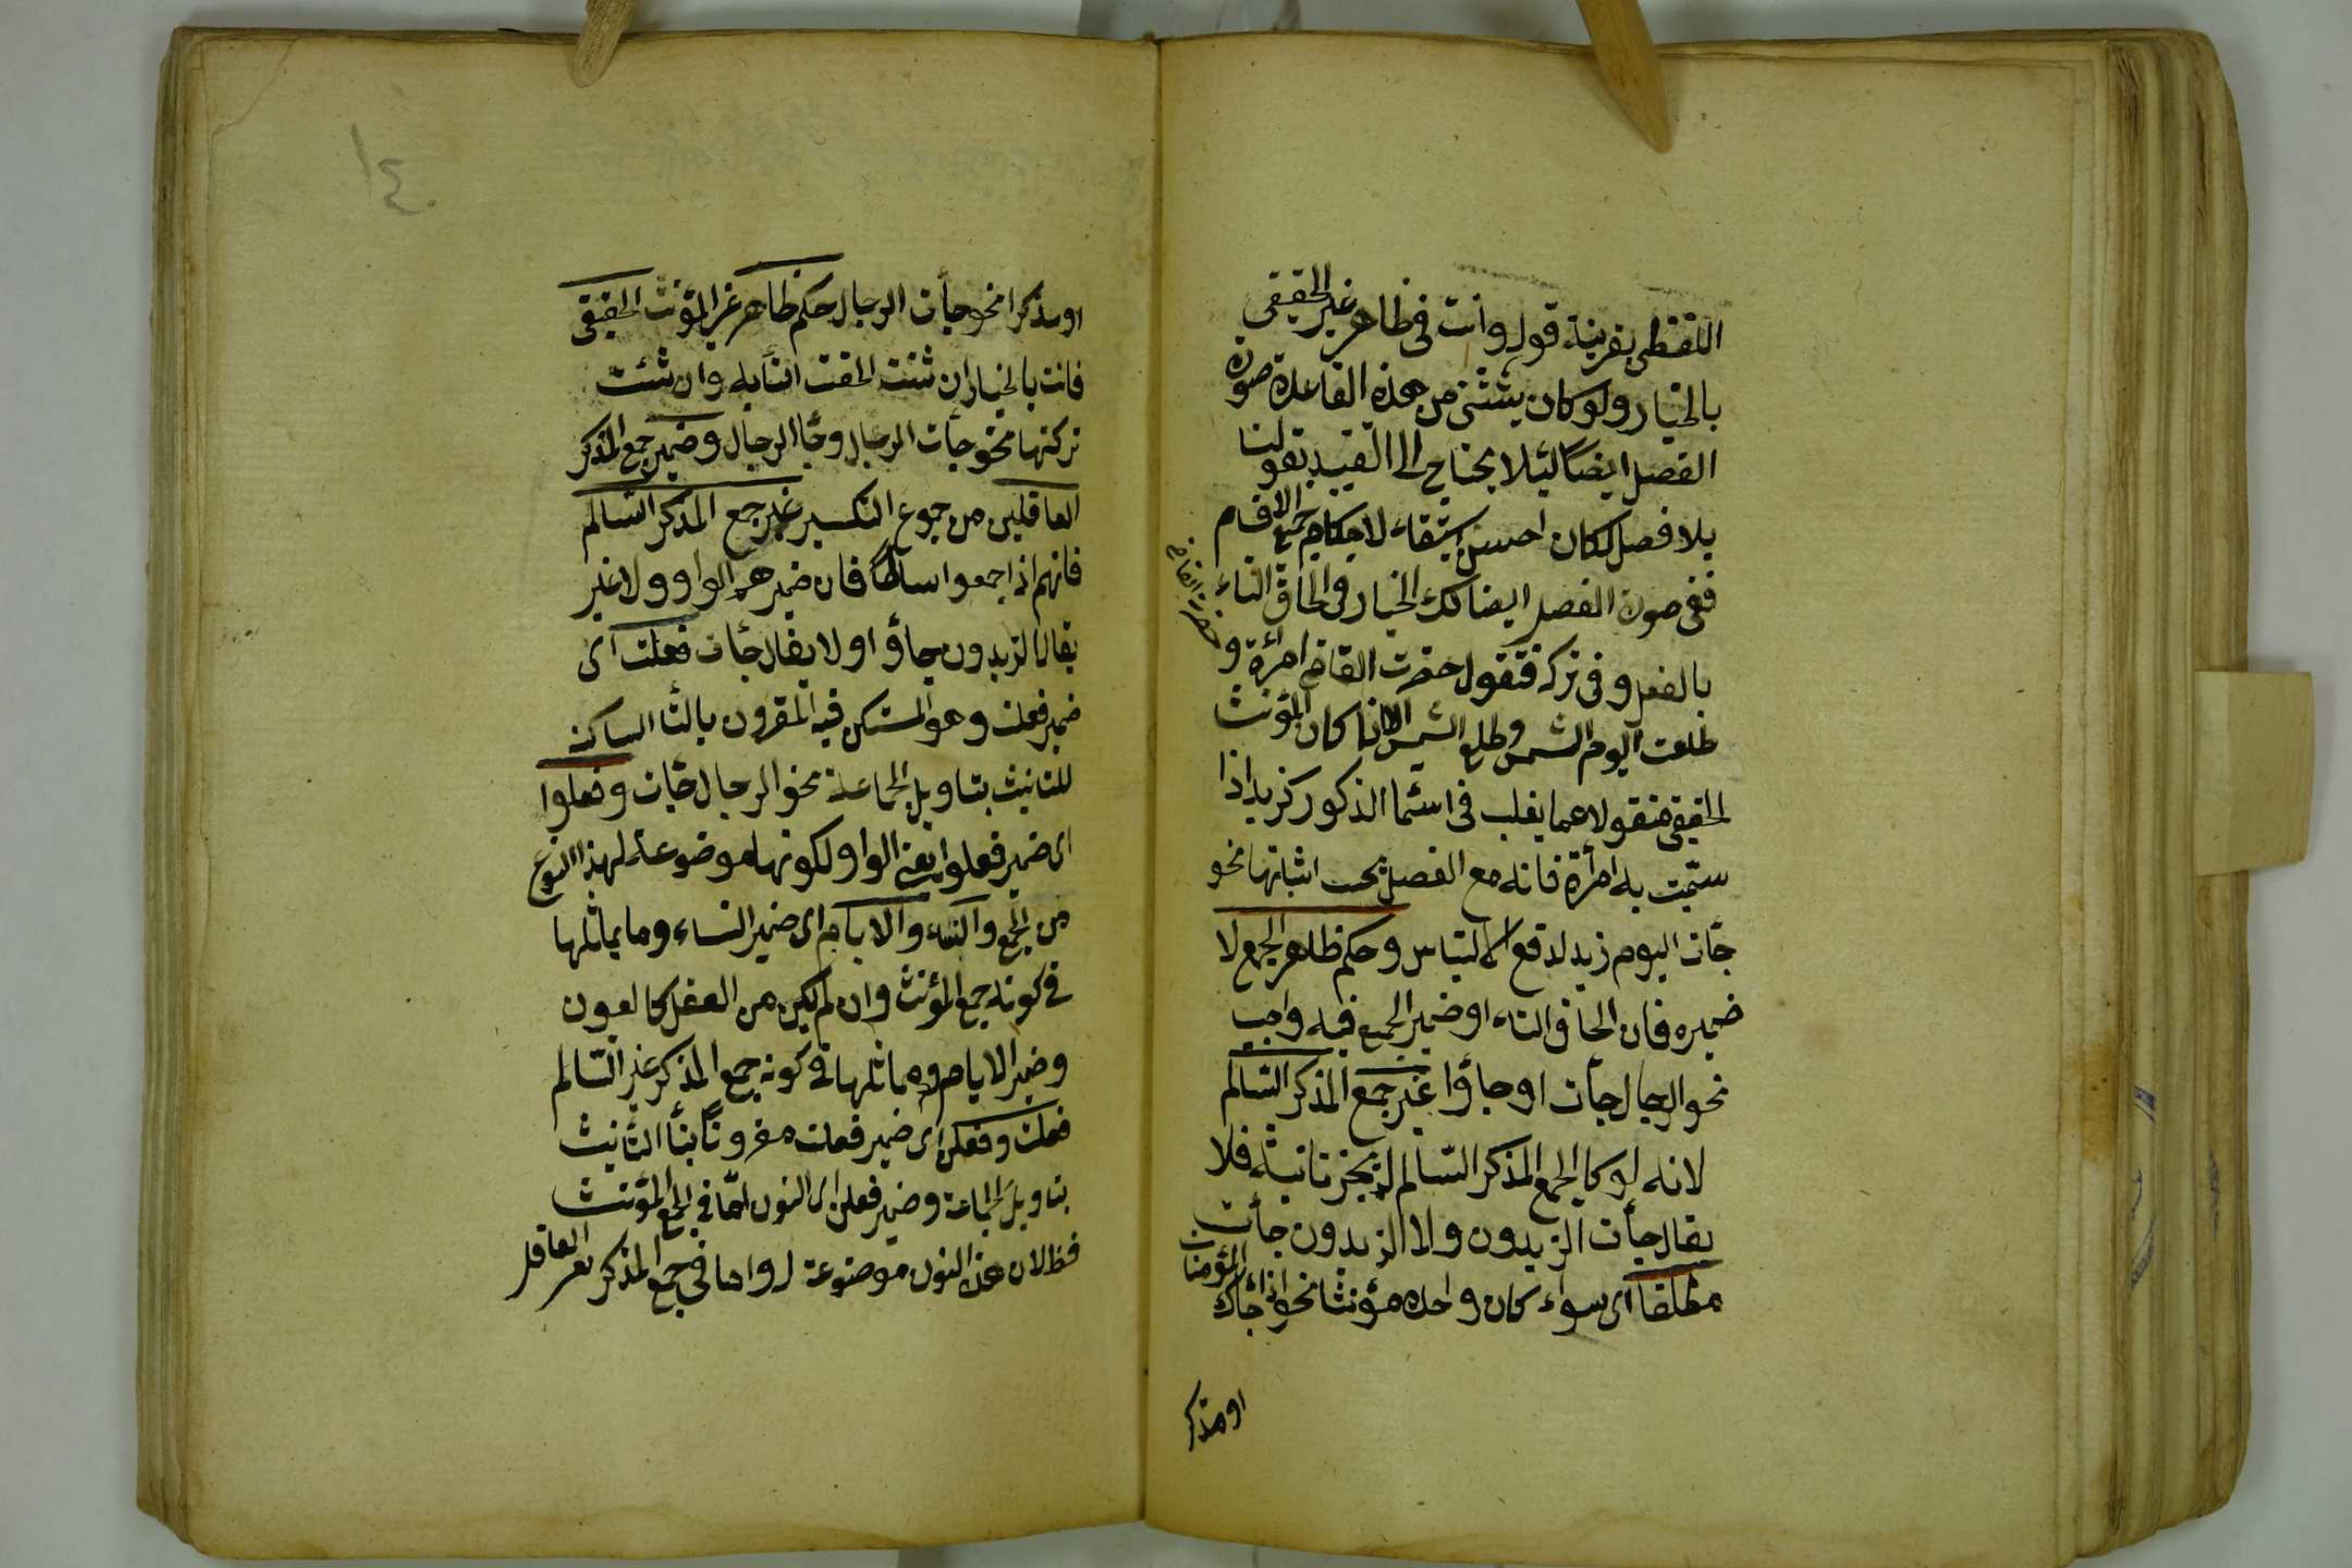 اللفظى بقرينة قوله وانت فى ظاهر غير الحقيقى
بالخيار ولو كان يستثنى من هذه القاعدة صورة
الفصل ايضا لئلا يحتاج الى القيد بقولنا
بلا فصل لكان احسن استيفاء لاحكام جميع الاقسام
ففى صورة الفصل ايضا لك الخيار فى الحاق التاء
بالفعل وفى تركه فتقول حضرت القاضى امرأة و
حضر القاضى
طلعت اليوم الشمس وطلع الشمس الا اذا كان المؤنث
الحقيقى منقولا عما يغلب فى اسماء الذكور كزيد اذا
سميت به امرأة فانه مع الفصل يجب اثباتها نحو
جأت اليوم زيد لدفع الالتباس وحكم ظاهر الجمع لا
ضميره فان الحاق التاء او ضمير الجمع فيه واجب
نحو الرجال جأت او جاؤا غير جمع المذكر السالم
لانه لو كان الجمع المذكر السالم لم يجز تانيثه فلا
يقال جأت الزيدون ولا الزيدون جأت
مطلقا اى سواء كان واحده مؤنثا نحو اذا جأك المؤمنات
او مذكر
١٤
او مذكرا نحو جأت الرجال حكم ظاهر غير المؤنث الحقيقى
فانت بالخيار ان شئت الحقت التاء به وان شئت
تركتها نحو جأت الرجال وجا الرجال وضمير جمع المذكر
العاقلين من جموع التكسير غير جمع المذكر السالم
فانهم اذا جمعوا سالما فان ضميرهم الواو ولا غير
يقال الزيدون جاؤا ولا يقال جأت فعلت اى
ضمير فعلت وهو المستكن فيه المقرون بالتا الساكنة
للتانيث بتاويل الجماعة نحو الرجال جأت وفعلوا
اى ضمير فعلوا يعنى الواو لكونها موضوعة لهذا النوع
من الجمع والنساء والايام اى ضمير النساء وما يماثلها
فى كونه جمع المؤنث وان لم يكن من العقل كالعيون
وضمير الايام وما يماثلها فى كونه جمع المذكر غير السالم
فعلت وفعلن اى ضمير فعلت مقرونا بتأ التأنيث
بتاويل الجماعة وضمير فعلن اى النون اما فى جمع المؤنث
فظ لان هذه النون موضوعة له واما فى جمع المذكر غير العاقل